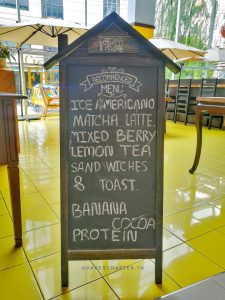 RECOMMENDED
MENU
ICE AMERICANO
MATCHA LATTE
MIXED BERRY
LEMON TEA
SAND WICHES
& TOAST.
BANANA
COCOA
PROTEIN